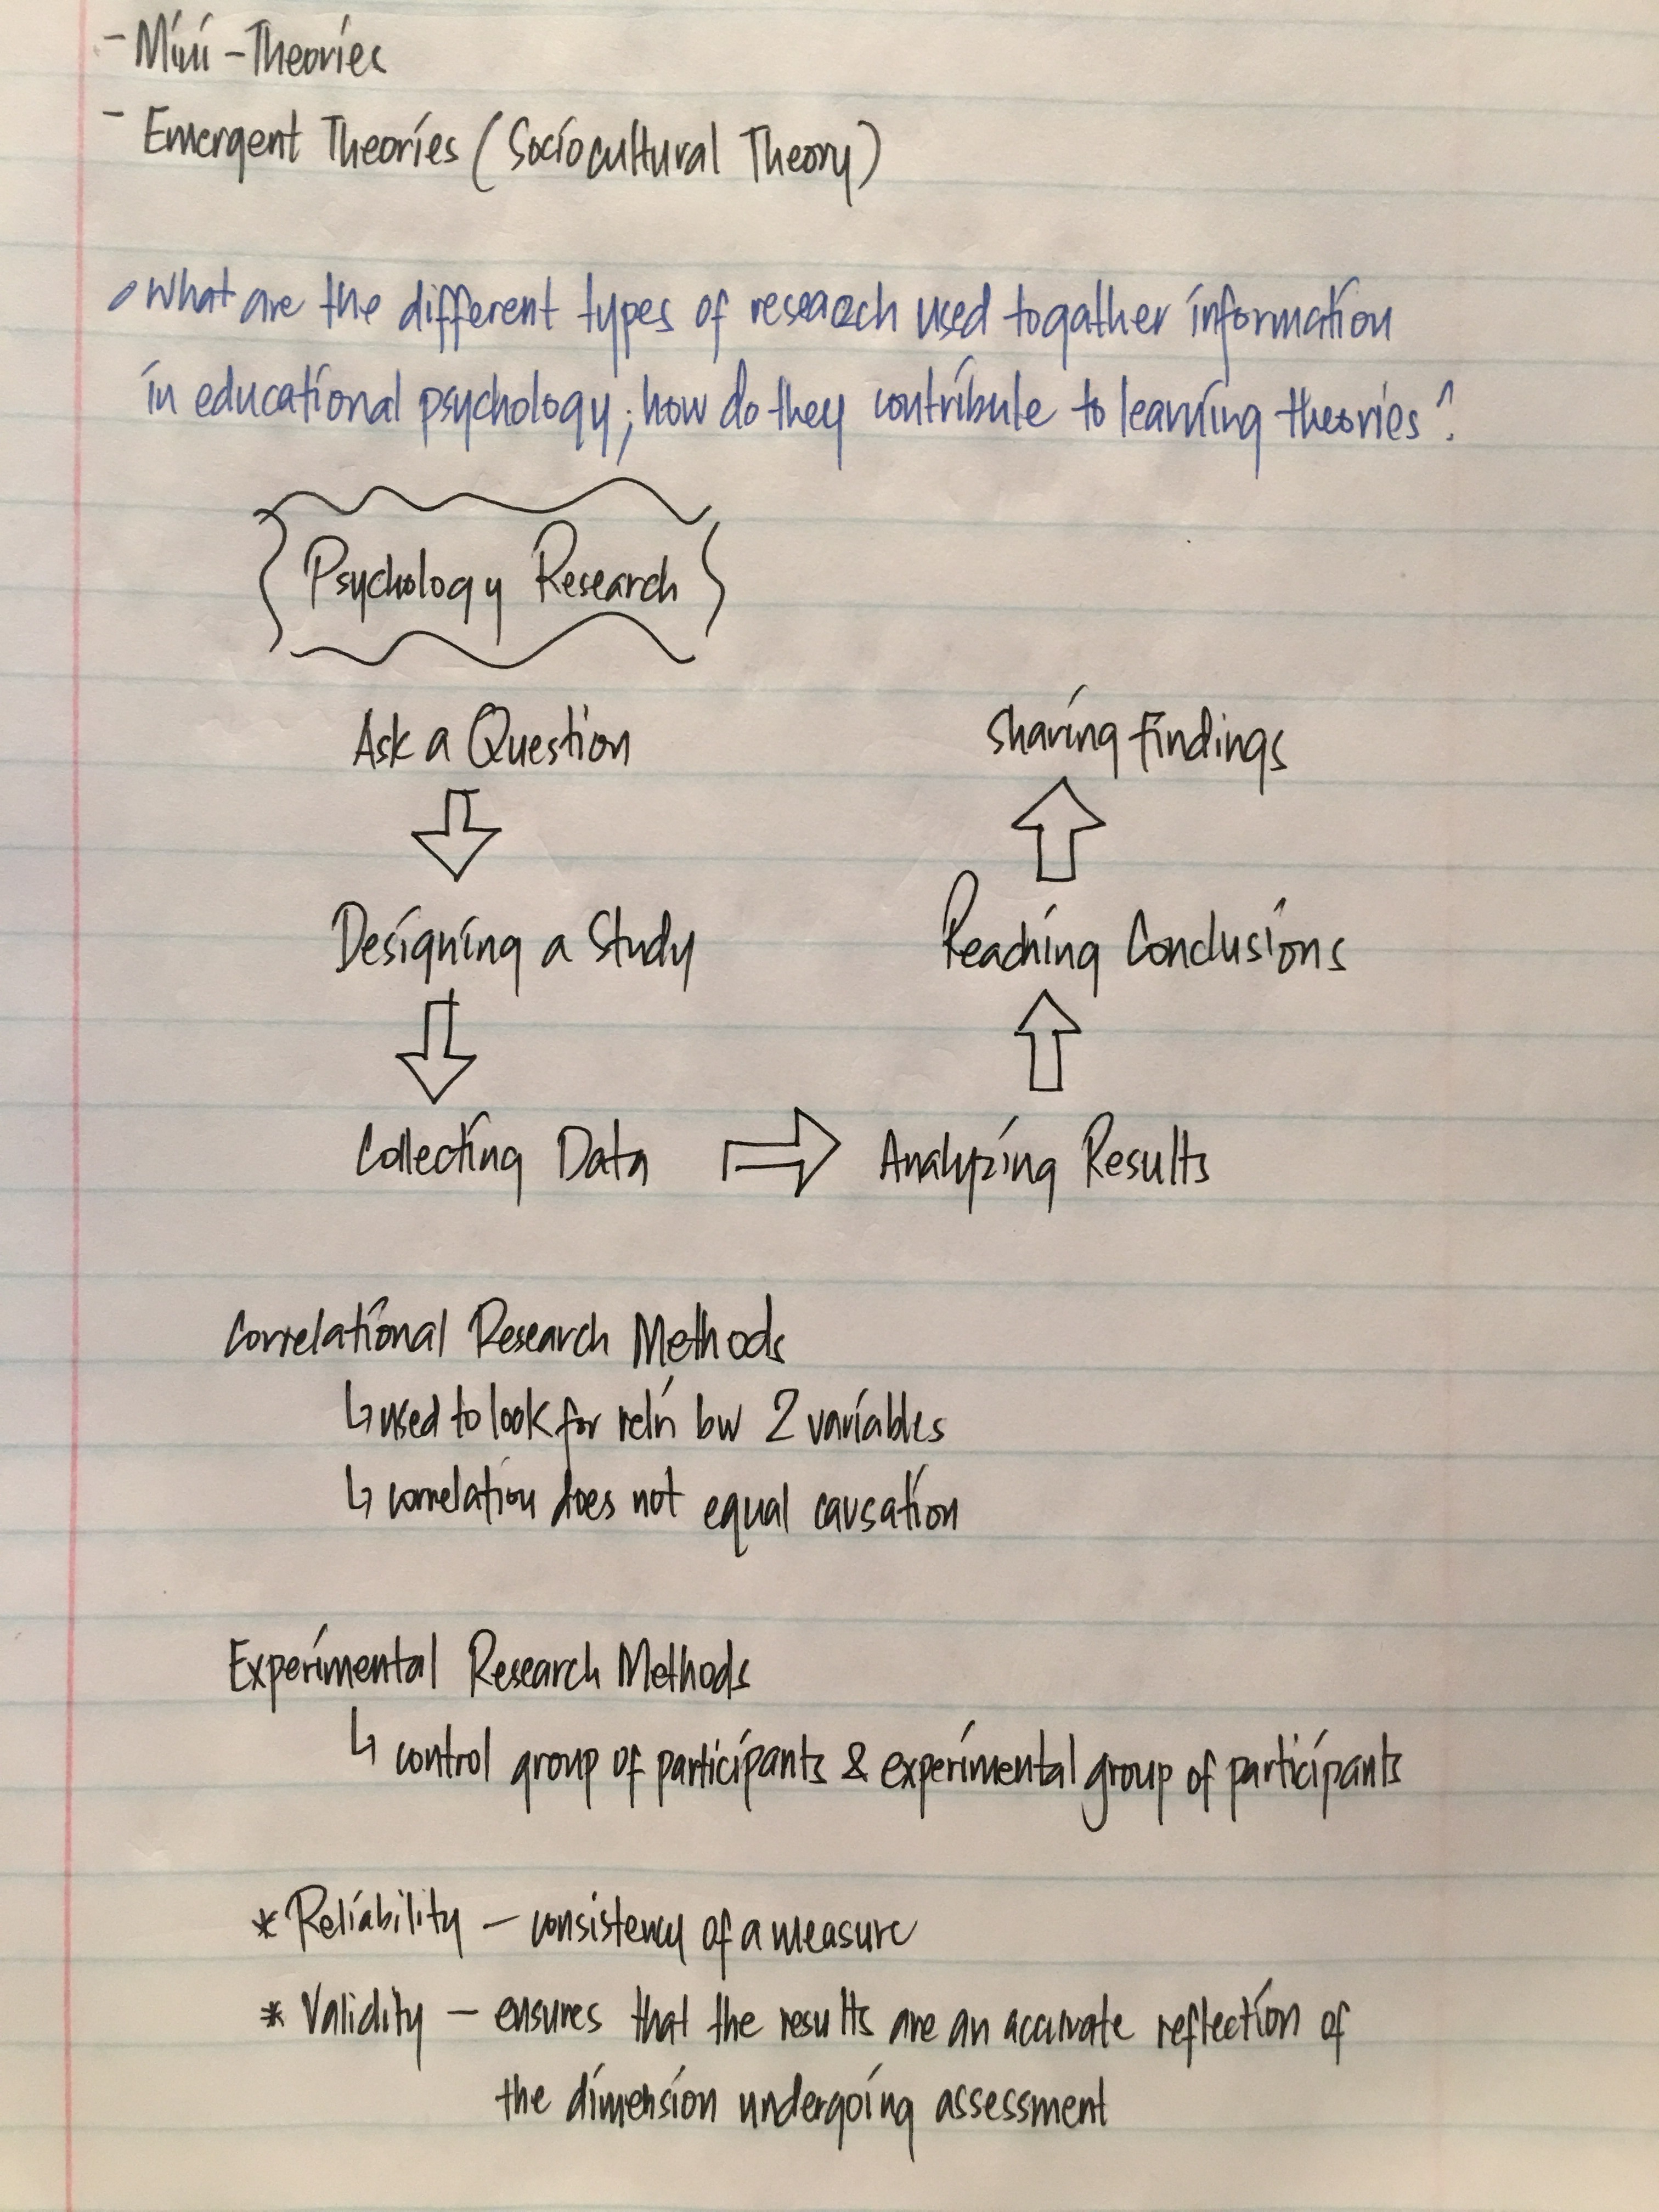 - Mini-Theories
- Emergent Theories (Sociocultural Theory)
What are the different types of research used to gather information
in educational psychology; how do they contribute to learning theories?
Psychology Research
Ask a Question
Designing a Study
Collecting Data
Analyzing Results
Reaching Conclusions
Sharing Findings
Correlational Research Methods
↳ used to look for rel'n bw 2 variables
↳ correlation does not equal causation
Experimental Research Methods
↳ control group of participants & experimental group of participants
* Reliability - consistency of a measure
* Validity - ensures that the results are an accurate reflection of
the dimension undergoing assessment